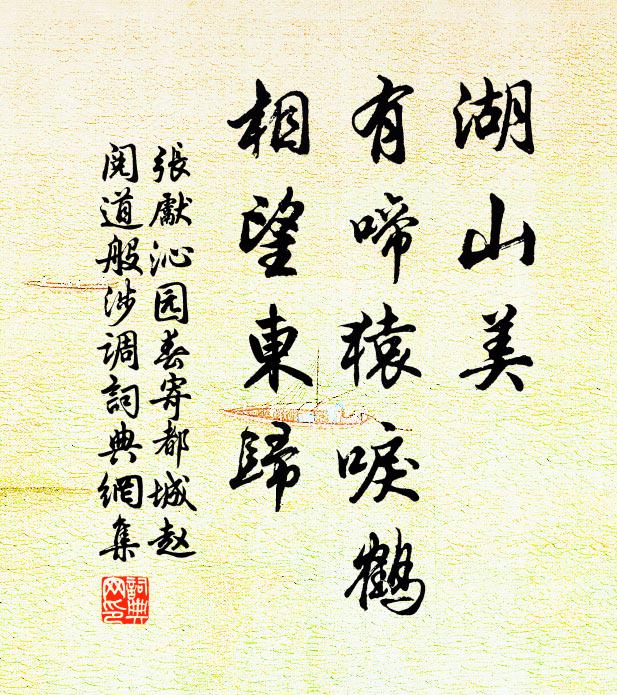 湖山美
有啼猿唳鶴
相望東歸
張獻沁园春寄都城赵
阅道般涉调詞典網集
詞典
网印